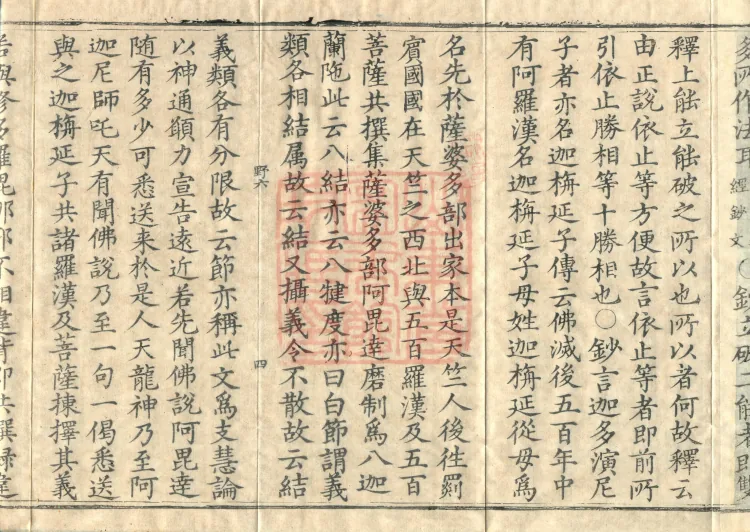 多所作法耳經鈔文〇鈔立破二能者即雙
釋上能立能破之所以也所以者何故釋云
由正說依止等方便故言依止等者即前所
引依止勝相等十勝相也〇鈔言迦多演尼
子者亦名迦栴延子傳云佛滅後五百年中
有阿羅漢名迦栴延子母姓迦栴延從母爲
名先於薩婆多部出家本是天竺人後往罽
賓國國在天竺之西北與五百羅漢及五百
菩薩共撰集薩婆多部阿毘達磨制爲八迦
蘭陁此云八結亦云八犍度亦曰白節謂義
類各相結属故云結又攝義令不散故云結
野六 四
義類各有分限故云節亦稱此文爲支慧論
以神通願力宣告遠近若先聞佛說阿毘達
随有多少可悉送来於是人天龍神乃至阿
迦尼師吒天有聞佛說乃至一句一偈悉送
與之迦栴延子共諸羅漢及菩薩揀擇其義
若與修多羅毘那耶不相違背即共撰録違